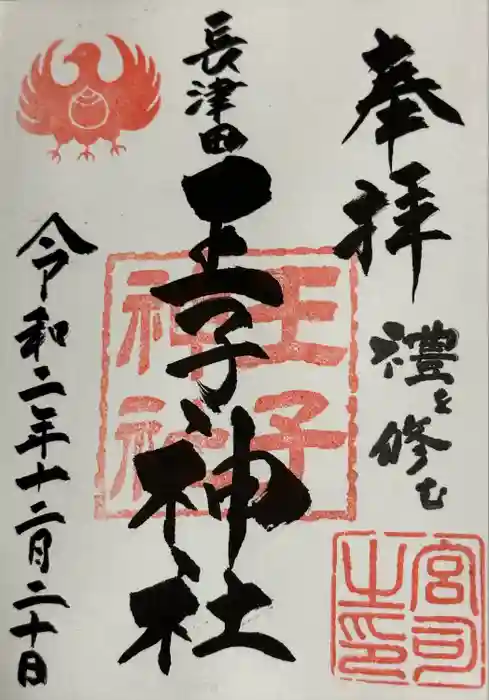 奉拝
禮を修む
長津田
王子神社
王子神社
宮司之印
令和二年十二月二十日